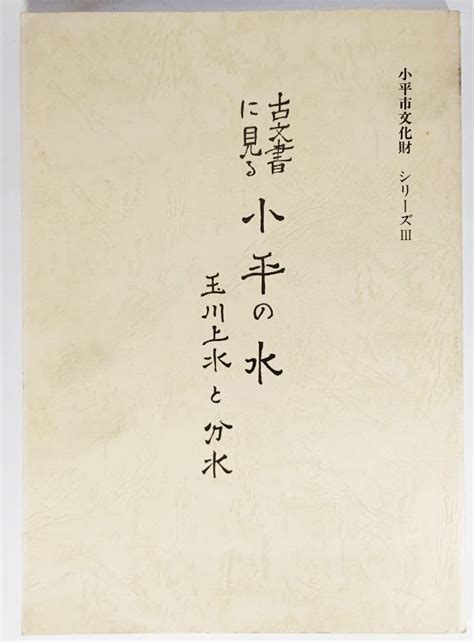 小平市文化財 シリーズⅢ
古文書
に見る
小平の水
玉川上水と分水